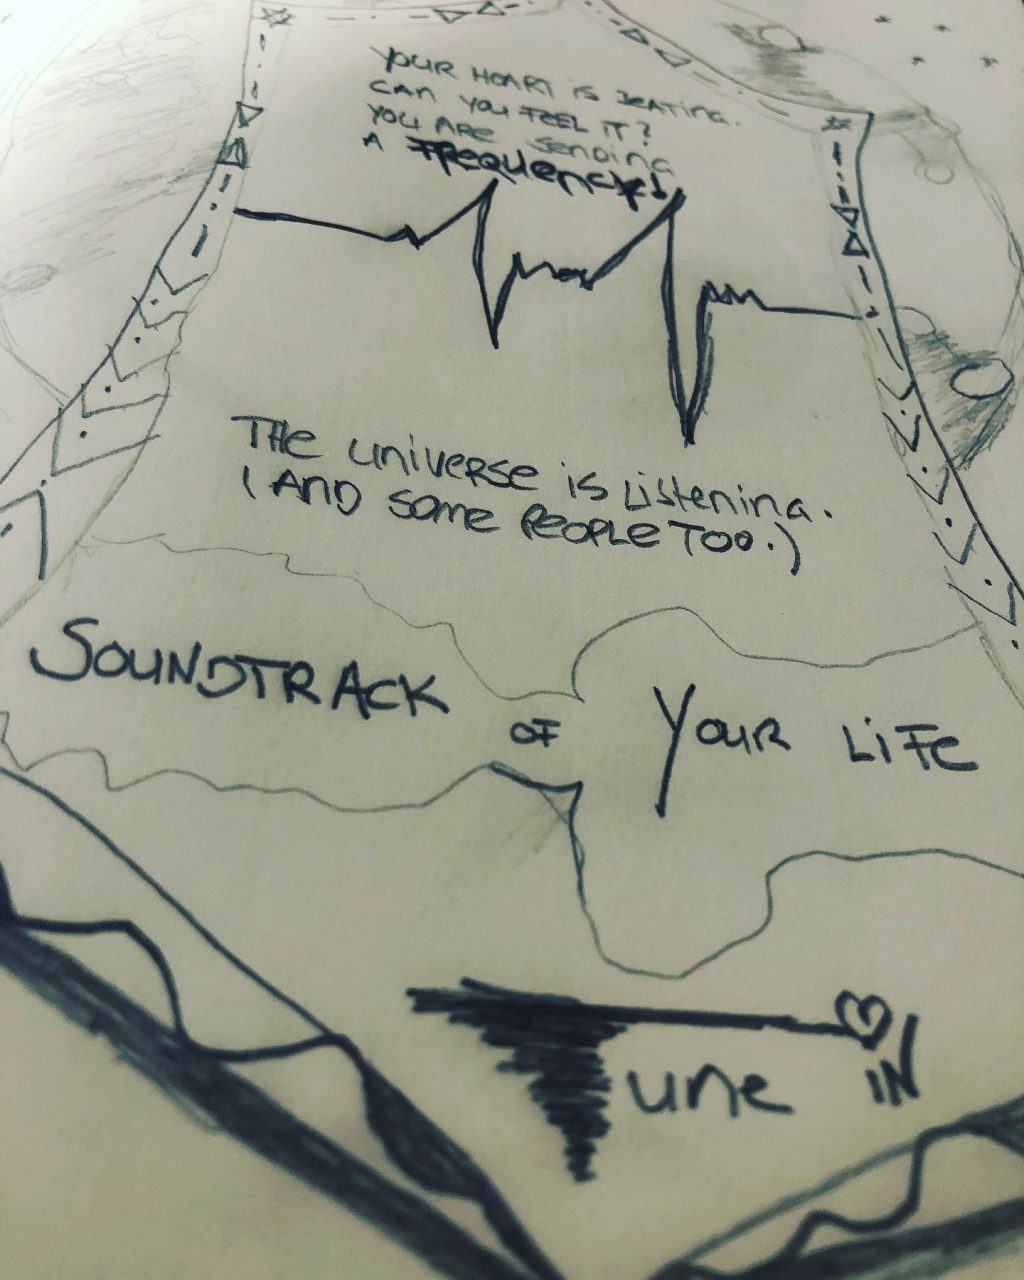 YOUR HEART iS BEATING.
CAN YOU FEEL IT?
YOU ARE SENDING
A FREQUENCY!
THE UNIVERSE iS LiSTENING.
(AND SOME PEOPLE TOO.)
SOUNDTRACK OF YOUR LiFE
Tune IN